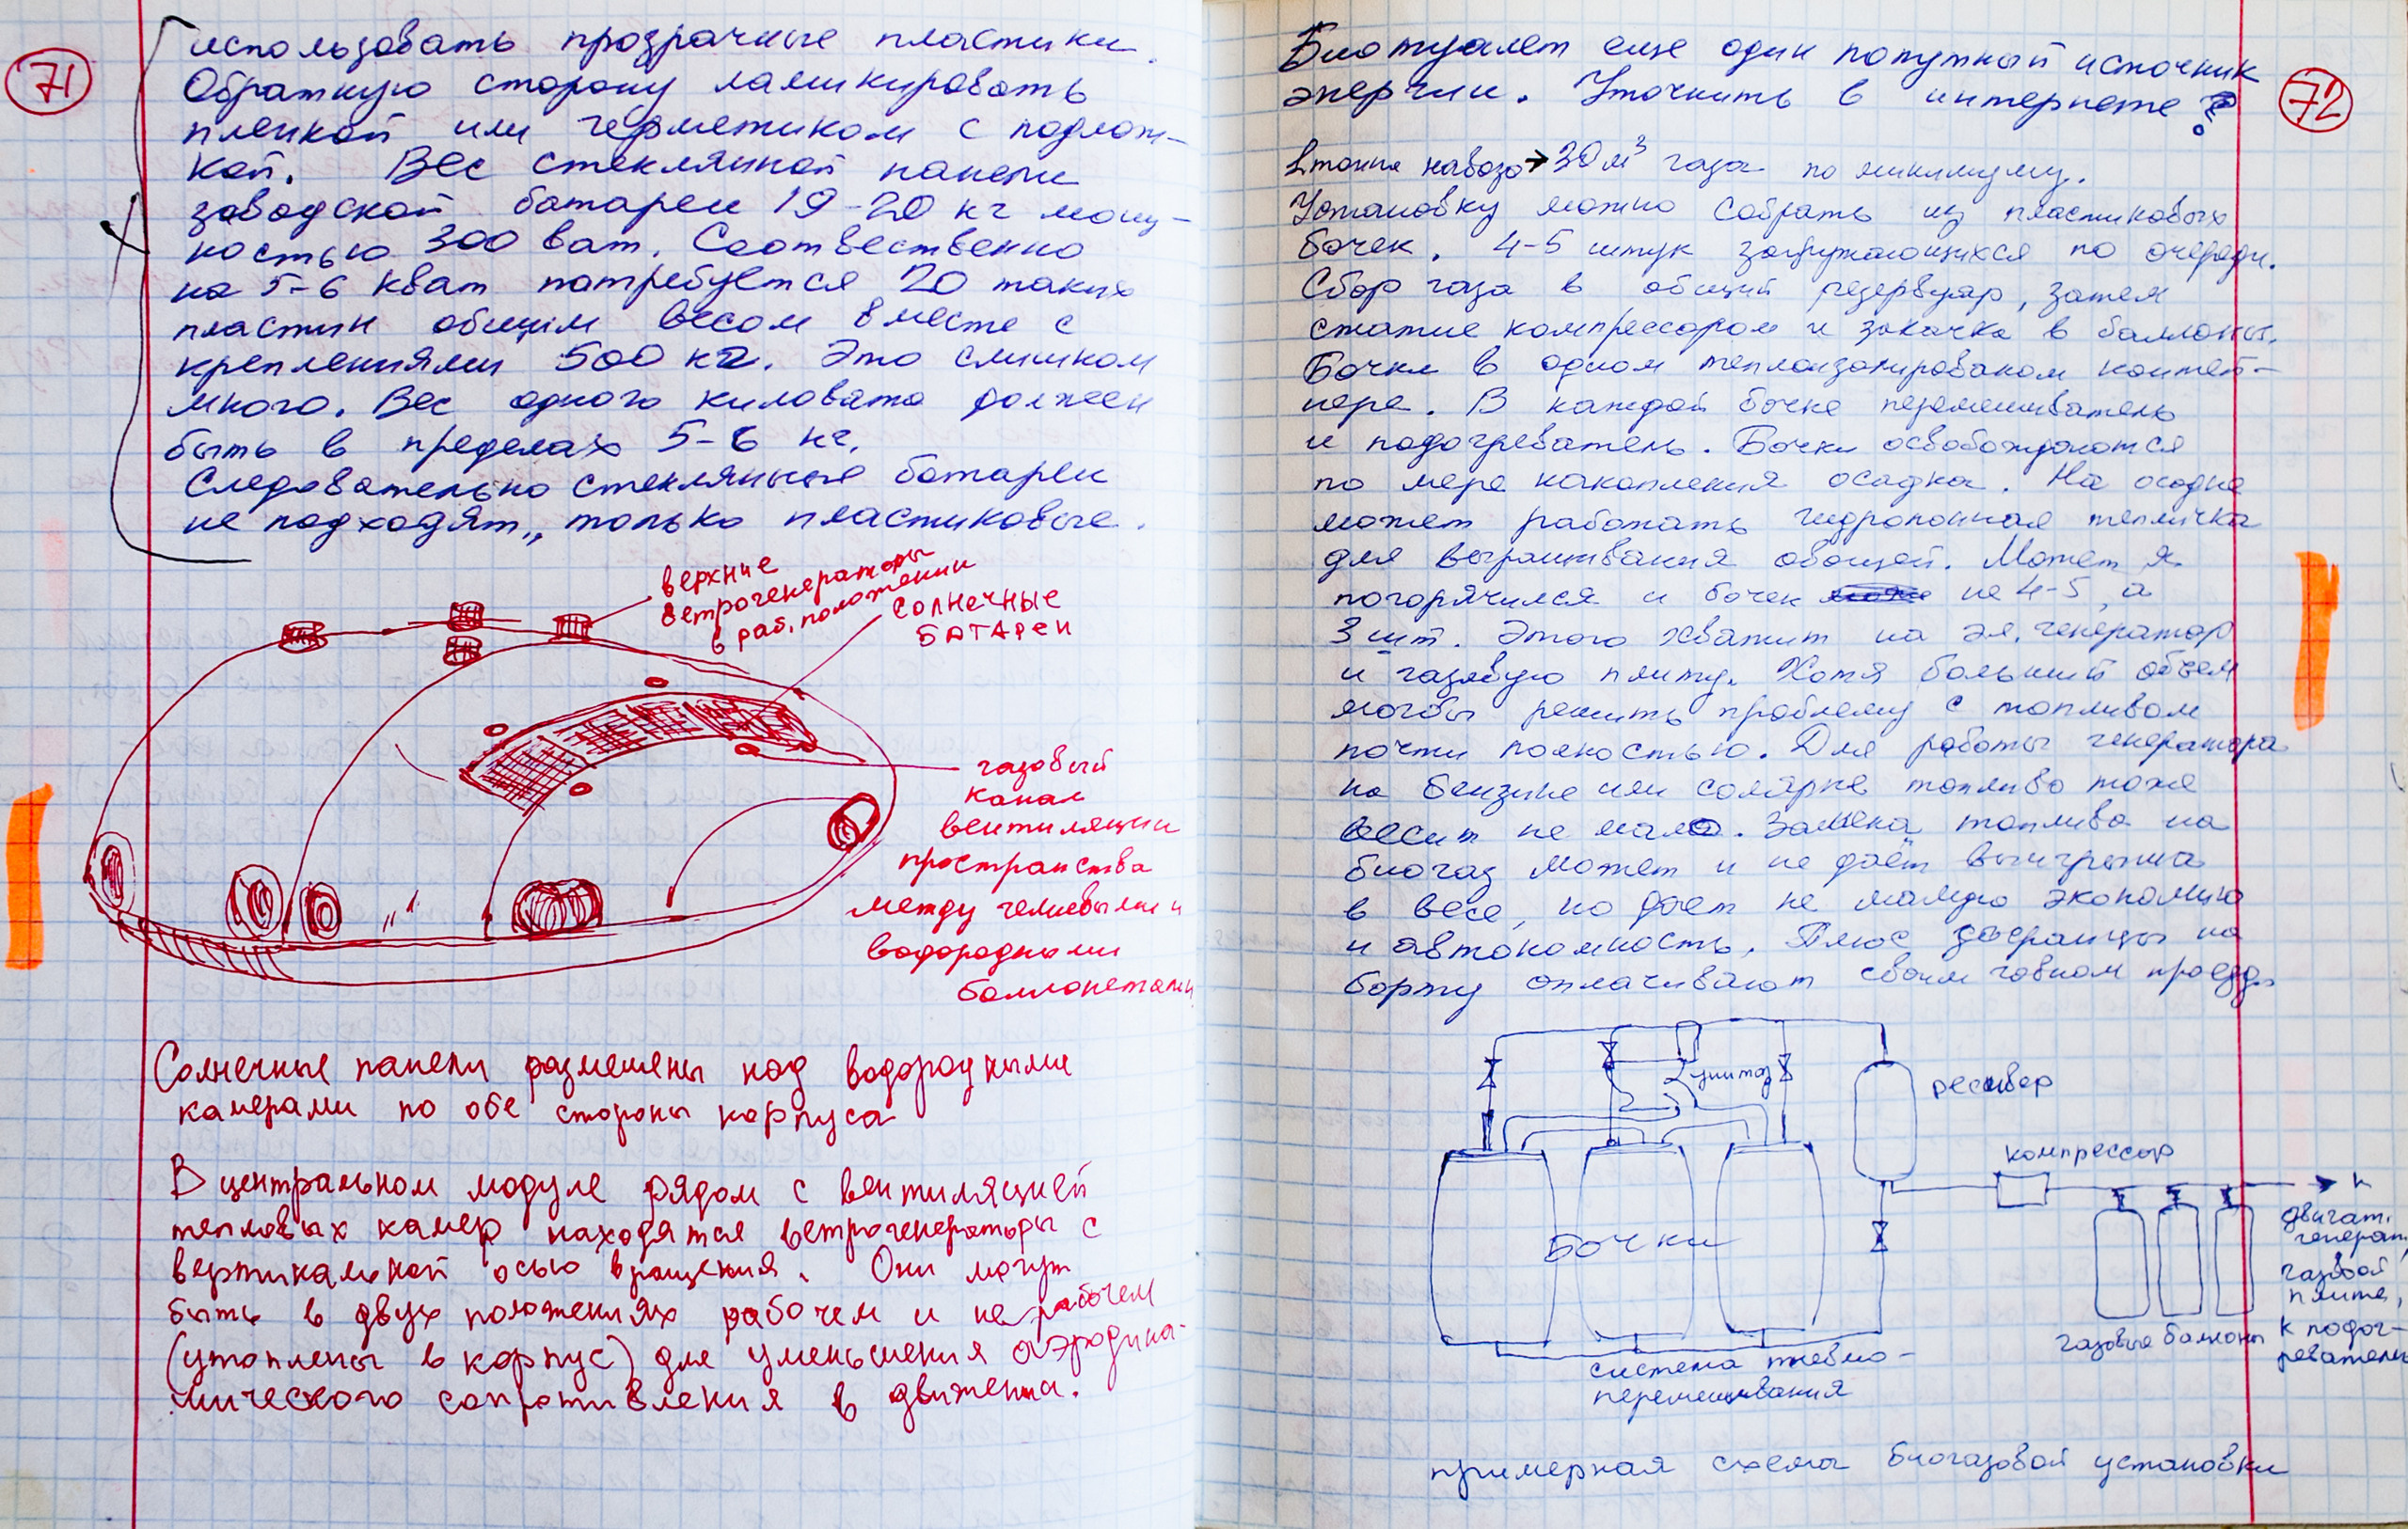 71
использовать прозрачные пластики.
Обратную сторону ламинировать
пленкой или герметиком с подлож-
кой. Вес стеклянной панели
заводской батареи 19-20 кг мощ-
ностью 300 ват. Соотвественно
на 5-6 кват потребуется 20 таких
пластин общим весом вместе с
креплениями 500 кг. Это слишком
много. Вес одного киловата должен
быть в пределах 5-6 кг.
Следовательно стеклянные батареи
не подходят, только пластиковые.
верхние
ветрогенераторы
в раб. положении
солнечные
батареи
газовый
канал
вентиляции
пространства
между гелиевыми и
водородными
баллонетами
Солнечные панели размещены над водородными
камерами по обе стороны корпуса
В центральном модуле рядом с вентиляцией
тепловых камер находятся ветрогенераторы с
вертикальной осью вращения. Они могут
быть в двух положениях рабочем и не рабочем
(утоплены в корпус) для уменьшения аэродина-
мического сопротивления в движении.
72
Биотуалет еще один попутный источник
энергии. Уточнить в интернете?
1 тонна навоза → 30 м³ газа по минимуму.
Установку можно собрать из пластиковых
бочек. 4-5 штук загружающихся по очереди.
Сбор газа в общий резервуар, затем
сжатие компрессором и закачка в баллоны.
Бочки в одном теплоизолированом контей-
нере. В каждой бочке перемешиватель
и подогреватель. Бочки освобождаются
по мере накопления осадка. На осадке
может работать гидропонная тепличка
для выращивания овощей. Может я
погорячился и бочек не 4-5, а
3 шт. Этого хватит на эл. генератор
и газовую плиту. Хотя больший объем
мог бы решить проблему с топливом
почти полностью. Для работы генератора
на бензине или солярке топливо тоже
весит не мало. Замена топлива на
биогаз может и не даёт выигрыша
в весе, но дает не малую экономию
и автономность. Плюс засранцы на
борту оплачивают своим говном проезд.
унитаз
ресивер
компрессор
Бочки
к
двигат.
генерат,
газовой
плите,
к подог-
ревателю
газовые баллоны
система пневмо-
перемешивания
примерная схема биогазовой установки